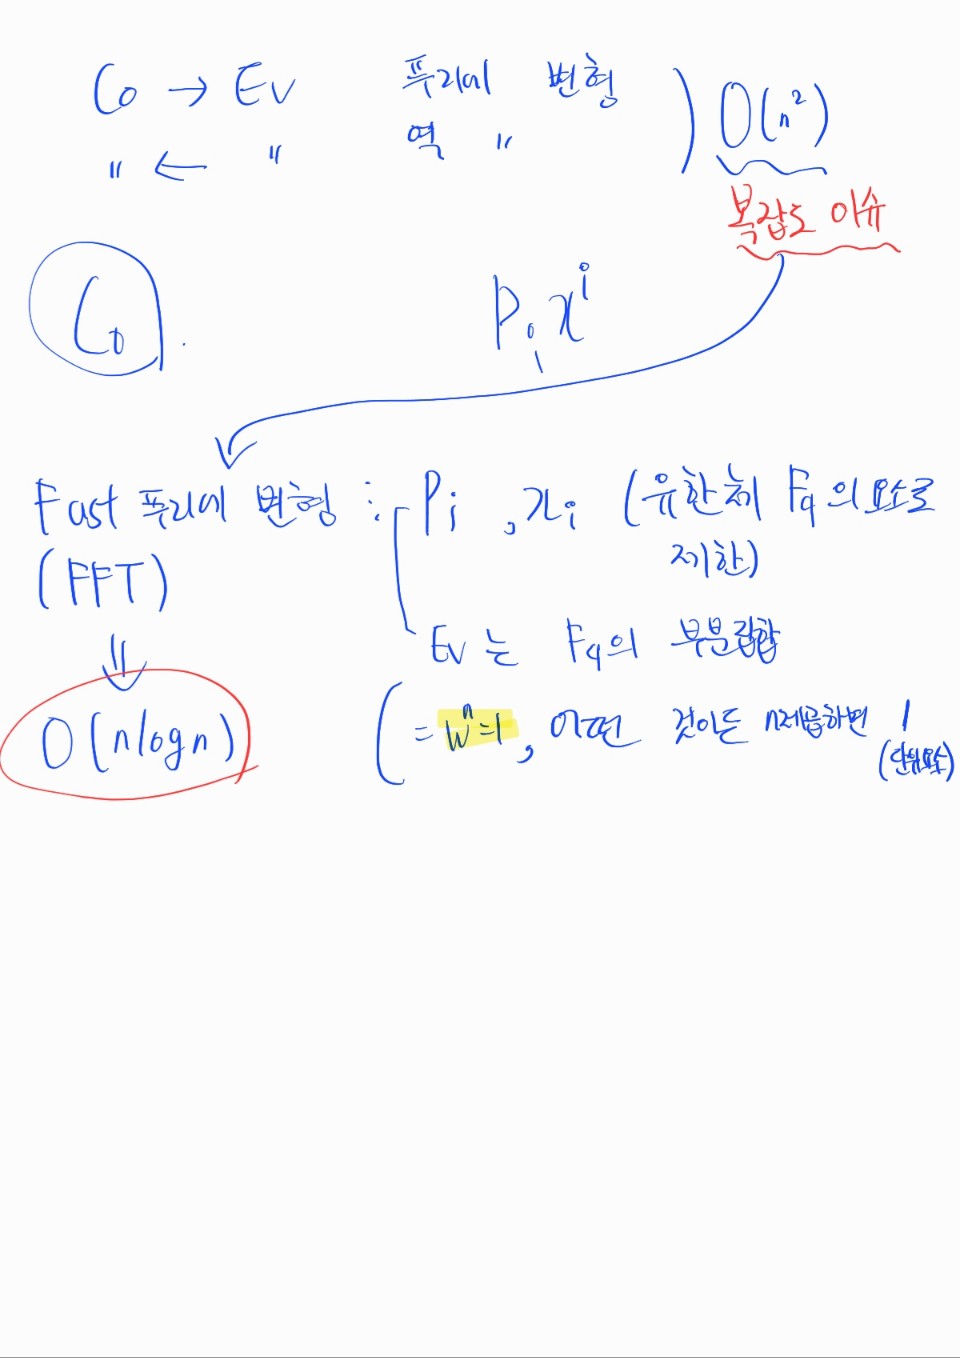 Co → Ev 푸리에 변형
〃 ← 〃 역 〃
) O(n²)
복잡도 이슈
Co.
Pᵢ xⁱ
Fast 푸리에 변형 : Pᵢ , xᵢ (유한체 F₉의 요소로
(FFT) 제한)
⇓
Ev 는 F₉의 부분집합
O(n log n)
( = wⁿ=1, 어떤 것이든 n제곱하면 1
(단위요소)